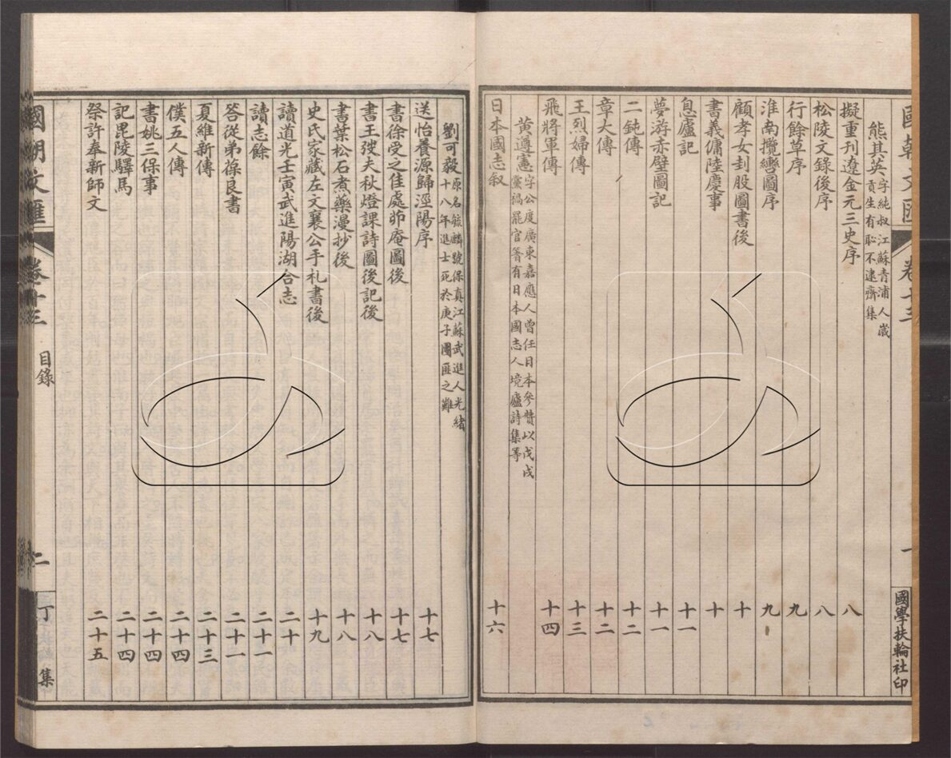 國朝文匯 卷十三 國學扶輪社印
熊其英 字純叔江蘇青浦人歲貢生有恥不逮齋集
擬重刊遼金元三史序 八
松陵文錄後序 八
行餘草序 九
淮南攬轡圖序 九
顧孝女刲股圖書後 十
書義傭陸慶事 十
息廬記 十一
夢游赤壁圖記 十一
二鈍傳 十二
章大傳 十二
王烈婦傳 十三
飛將軍傳 十四
黃遵憲 字公度廣東嘉應人曾任日本參贊以戊戌黨禍罷官箸有日本國志人境廬詩集等
日本國志敘 十六
劉可毅 原名毓麟號葆真江蘇武進人光緒十八年進士死於庚子團匪之難
送怡養源歸涇陽序 十七
書徐受之佳處茆庵圖後 十七
書王弢夫秋燈課詩圖後記後 十八
書葉松石煮藥漫抄後 十八
史氏家藏左文襄公手札書後 十九
讀道光壬寅武進陽湖合志 二十
讀志餘 二十一
答從弟葆良書 二十一
夏維新傳 二十三
僕五人傳 二十四
書姚三保事 二十四
記毘陵驛馬 二十四
祭許奉新師文 二十五
國朝文匯 卷十三 目錄 二 丁集